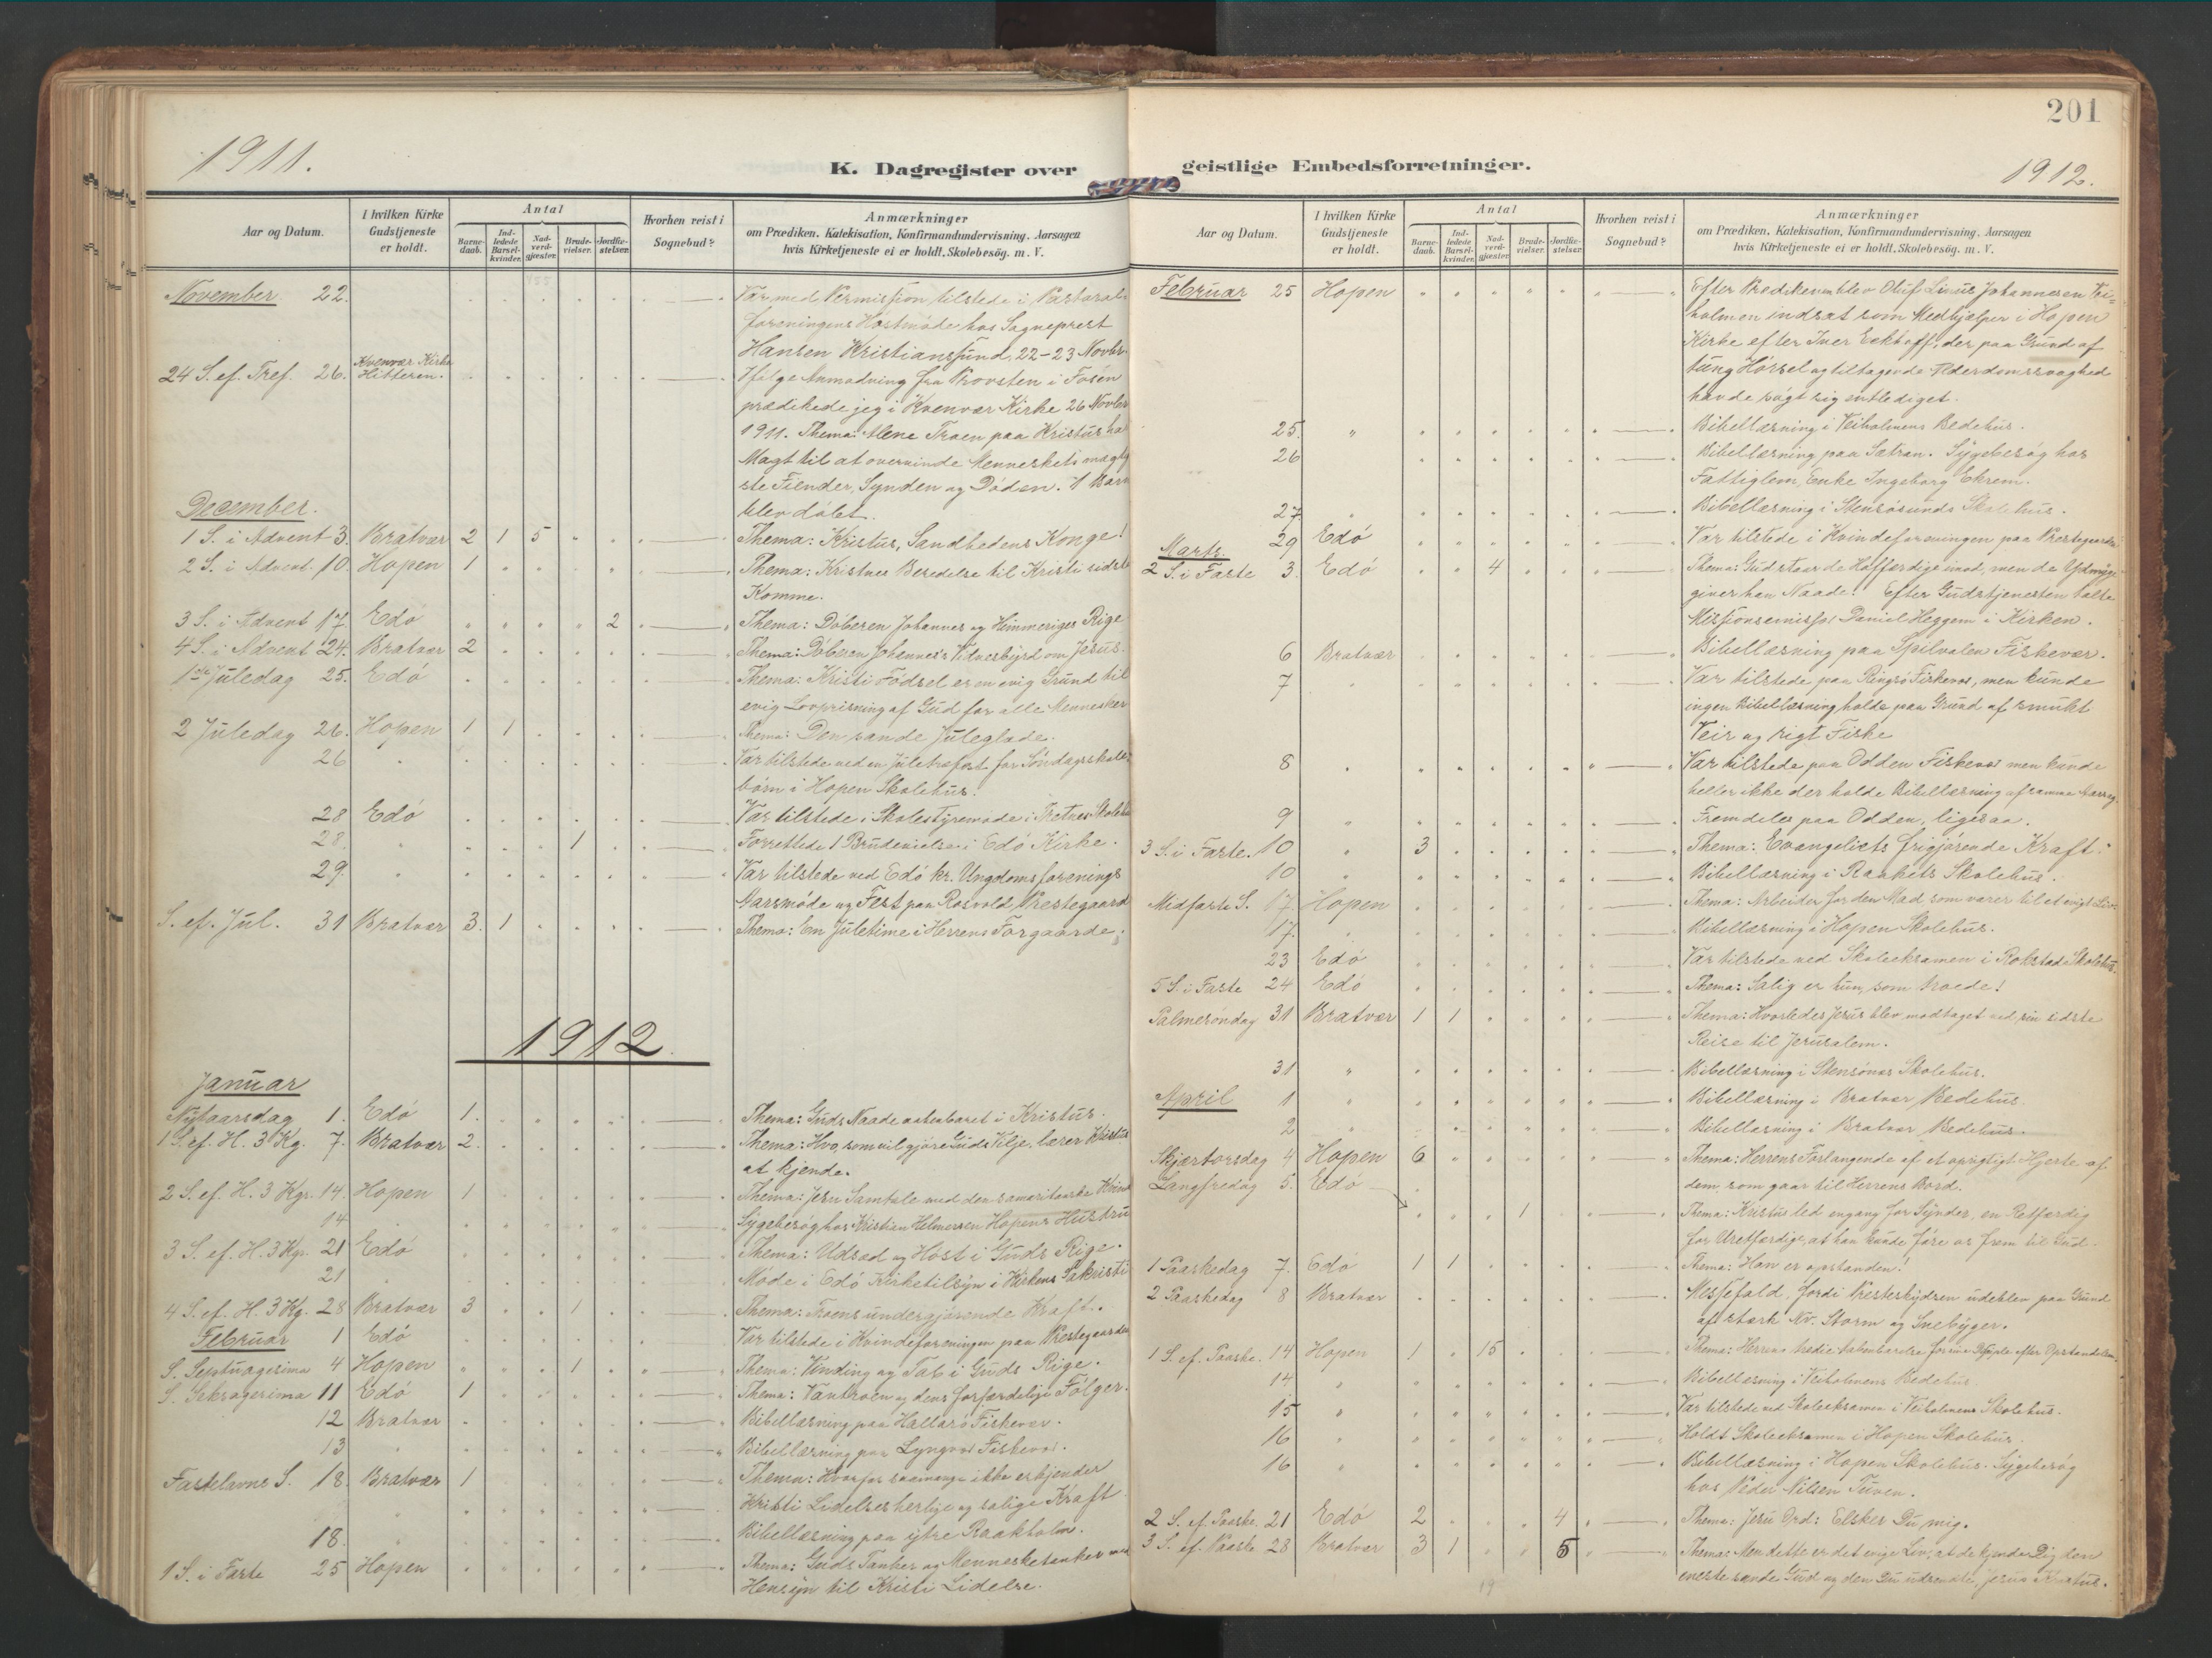 201
1911.
K. Dagregister over
geistlige Embedsforretninger.
1912.
Aar og Datum.
I hvilken Kirke
Gudstjeneste
er holdt.
Antal
Barne-
daab.
Ind-
ledede
Barsel-
kvinder.
Nad-
verd-
gjæster.
Brude-
vielser.
Jordfæ-
stelser.
Hvorhen reist i
Sognebud?
Anmærkninger
om Prædiken, Katekisation, Konfirmandundervisning. Aarsagen
hvis Kirketjeneste ei er holdt. Skolebesög. m. V.
November 22. Var med Permission tilstede i Pastoral-
foreningens Høstmøde hos Sogneprest
Hansen Kristianssund, 22-23 Novbr.
24 S. ef. Tref. 26. Kvenvær Kirke Hitteren. Ifølge Anmodning fra Provsten i Fosen
prædikede jeg i Kvenvær Kirke 26 Novbr
1911. Thema: Alene Troen paa Kristus ha
Magt til at overvinde Menneskets mægtig
ste Fiender, Synden og Døden. 1 Barn
blev døbt.
December.
1 S. i Advent 3. Bratvær 2 1 5 Thema: Kristus, Sandhedens Konge!
2 S. i Advent. 10. Hopen 1 Thema: Kristnes Beredelse til Kristi sidste
Komme.
3 S. i Advent 17. Edø 2 Thema: Døberen Johannes og Himmeriges Rige
4 S. i Advent 24. Bratvær 2 Thema: Døberen Johannes's Vidnesbyrd om Jesus.
1ste Juledag 25. Edø Thema: Kristi Fødsel er en evig Grund til
evig Lovprisning af Gud for alle Mennesker
2 Juledag 26. Hopen 1 1 Thema: Den sande Juleglæde.
26 " Var tilstede ved en Juletræfest for Søndagsskole-
børn i Hopen Skolehus.
28 Edø Var tilstede i Skolestyremøde i Skolehu
28. " 1 Forrettede 1 Brudevielse i Edø Kirke.
29. " Var tilstede ved Edø kr. Ungdomsforenings
Aarsmøde og Fest paa Rosvold, Prestegaard
S. ef. Jul. 31 Bratvær 3. 1 Thema: En Juletime i Herrens Forgaarde.
1912.
Januar
Nytaarsdag 1. Edø 1. Thema: Guds Naade aabenbaret i Kristus.
1 S. ef. H. 3 Kg. 7. Bratvær 2. Thema: Hvo, som vil gjøre Guds Vilje, lærer Kristus
at kjende.
2 S. ef. H. 3 Kgr. 14. Hopen 1 Thema: Jesu Samtale med den samaritanske Kvind
14 Sygebesøg hos Kristian Helmersen Hopens Hustru
3 S. ef. H. 3 Kgr. 21 Edø Thema: Udsæd og Høst i Guds Rige.
21 " Møde i Edø Kirketilsyn i Kirkens Sakristi
4 S. ef. H. 3 Kg. 28 Bratvær 3 1 Thema: Troens undergjørende Kraft.
Februar 1 Edø Var tilstede i Kvindeforeningen paa Prestegaarden
S. Septuagesima 4 Hopen 1 Thema: Vinding og Tab i Guds Rige.
S. Seksagesima 11 Edø 1 Thema: Vantroen og dens forfærdelige Følger.
12 Bratvær Bibellæsning paa Hallarø Fiskevær.
13 " Bibellæsning paa Lyngvær Fiskevær.
Fastelavns S. 18. Bratvær 1 Thema: Hvorfor saamange ikke erkjender
Kristi Lidelses herlige og salige Kraft.
18. " Bibellæsning paa ytre Raakholm.
1 S. i Faste 25 Hopen Thema: Guds Tanker og Mennesketanker med
Hensyn til Kristi Lidelse.
Aar og Datum.
I hvilken Kirke
Gudstjeneste
er holdt.
Antal
Barne-
daab.
Ind-
ledede
Barsel-
kvinder.
Nad-
verd-
gjæster.
Brude-
vielser.
Jordfæ-
stelser.
Hvorhen reist i
Sognebud?
Anmærkninger
om Prædiken, Katekisation, Konfirmandundervisning. Aarsagen
hvis Kirketjeneste ei er holdt. Skolebesög. m. V.
Februar 25 Hopen Efter Prædikenen blev Oluf Linus Johannesen Vei-
holmen indsat som Medhjælper i Hopen
Kirke efter Iver Eckhoff, der paa Grund af
tung Hørsel og tiltagende Alderdomssvaghed
havde søgt sig entlediget.
25. " Bibellæsning i Veiholmens Bedehus.
26 Bibellæsning paa Sætran. Sygebesøg hos
Fattiglem, Enke Ingeborg Ekrem.
27. " Bibellæsning i Stensøsunds Skolehus.
29 Edø Var tilstede i Kvindeforeningen paa Prestegaarden
Marts.
2 S. i Faste 3. Edø 4 Thema: Gud staar de Hoffærdige imod, men de Ydmyge
giver han Naade! Efter Gudstjenesten talte
Missionsemissær Daniel Heggem i Kirken.
6 Bratvær Bibellæsning paa Spilvalen Fiskevær.
7 " Var tilstede paa Ringsø Fiskevær, men kunde
ingen Bibellæsning holde paa Grund af smukt
Veir og rigt Fiske
8 " Var tilstede paa Odden Fiskevær men kunde
heller ikke der holde Bibellæsning af samme Aarsag.
9 " Fremdeles paa Odden, ligesaa.
3 S. i Faste. 10 " 3 Thema: Evangeliets frigjørende Kraft.
10 " Bibellæsning i Raakets Skolehus.
Midfaste S. 17. Hopen Thema: Arbeider for den Mad som varer til et evigt Liv.
17. " Bibellæsning i Hopen Skolehus.
23 Edø Var tilstede ved Skoleeksamen i Rokstad Skolehus.
5 S. i Faste 24 Edø Thema: Salig er hun, som troede!
Palmesøndag 31 Bratvær 1 1 Thema: Hvorledes Jesus blev modtaget ved sin sidste
Reise til Jerusalem.
31 " Bibellæsning i Stensønes Skolehus.
April 1 " Bibellæsning i Bratvær Bedehus.
2 " Bibellæsning i Bratvær Bedehus.
Skjærtorsdag 4 Hopen 6 Thema: Herrens Forlangende af et oprigtigt Hjerte af
dem, som gaar til Herrens Bord.
Langfredag 5. Edø 1 Thema: Kristus led engang for Synder, en Retfærdig
for Uretfærdige, at han kunde føre os frem til Gud.
1 Paaskedag 7. Edø 1 1 Thema: Han er opstanden!
2 Paaskedag 8 Bratvær Messefald, fordi Presteskydsen udeblev paa Grund
af stærk Nv. Storm og Snebyger.
1 S. ef. Paaske. 14 Hopen 1 15 Thema: Herrens tredie Aabenbarelse for sine Disciple efter Opstandelsen.
14 " Bibellæsning i Veiholmens Bedehus.
15 " Var tilstede ved Skoleeksamen i Veiholmens Skolehus.
16 " Holdt Skoleeksamen i Hopen Skolehus.
16 " Bibellæsning i Hopen Skolehus. Sygebesøg
hos Peder Nilsen Tuven.
2 S. ef. Paaske. 21 Edø 2 4 Thema: Jesu Ord: Elsker Du mig.
3 S. ef. Paaske 28 Bratvær 3 1 5 Thema: Men dette er det evige Liv, at de kjender Dig den
eneste sande Gud og den Du udsendte, Jesus Kristus.
19